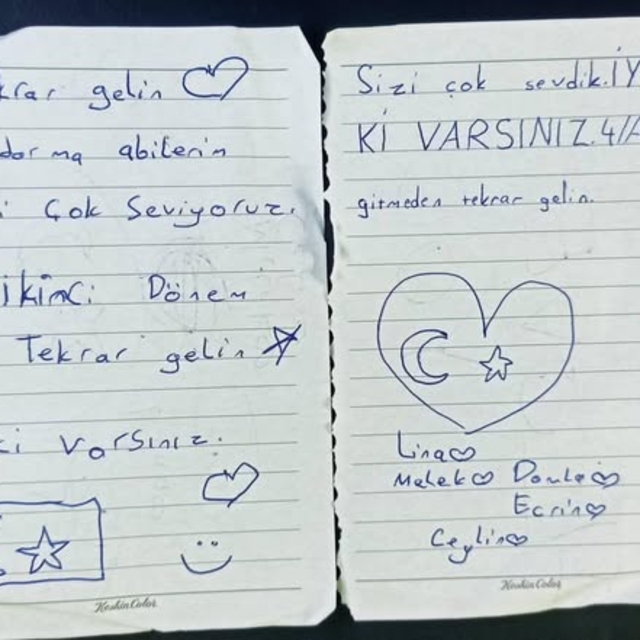 krar gelin
darma abilerim
i çok Seviyoruz.
ikinci Dönem
Tekrar gelin
ki varsınız.
Keskin Color
Sizi çok sevdik. İY
Kİ VARSINIZ. 4/A
gitmeden tekrar gelin.
Lina
Melek
Ecrin
Ceylin
Keskin Color